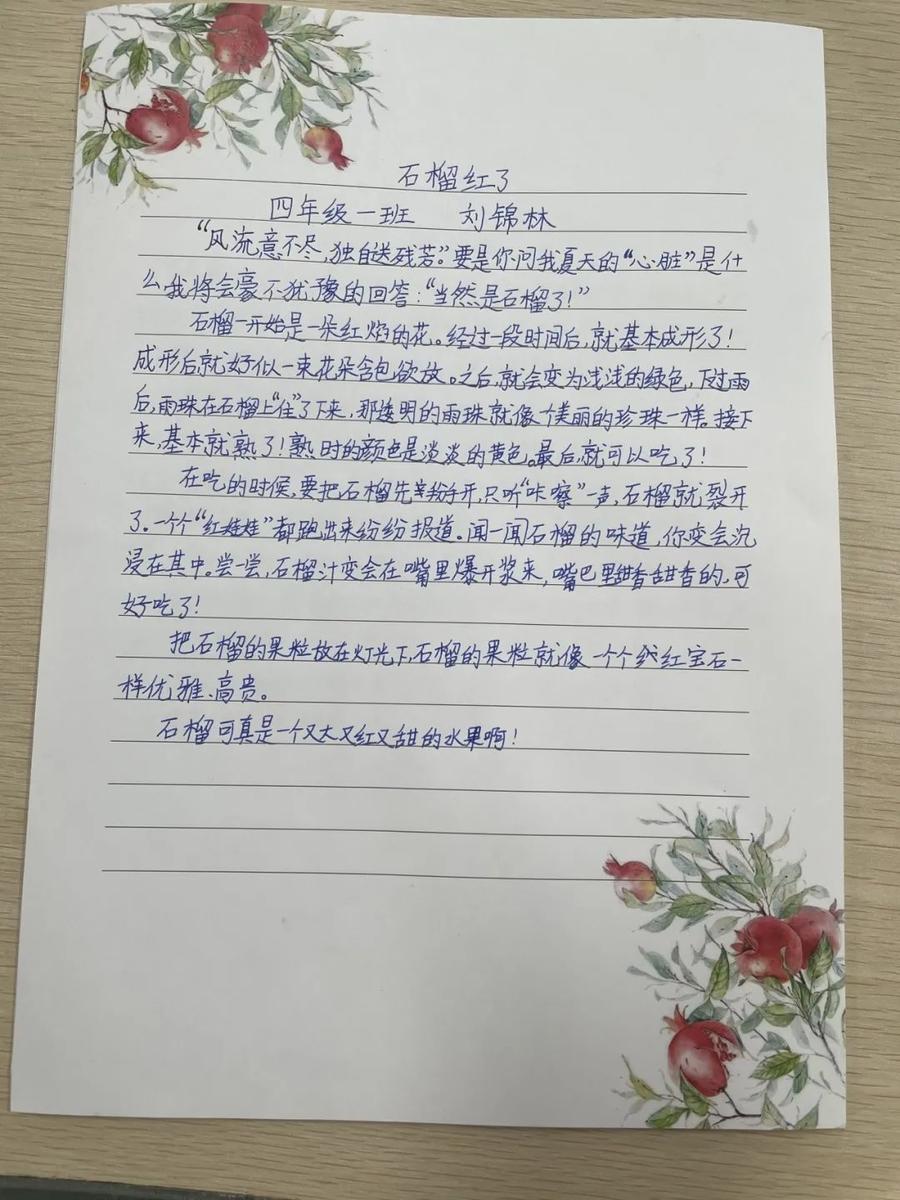 石榴红了
四年级一班 刘锦林
“风流意不尽，独自送残芳”。要是你问我夏天的“心脏”是什
么，我将会豪不犹豫的回答：“当然是石榴了！”
石榴一开始是一朵红焰的花。经过一段时间后，就基本成形了！
成形后就好似一束花朵含包欲放。之后，就会变为浅浅的绿色，下过雨
后，雨珠在石榴上“住”了下来，那透明的雨珠就像一个美丽的珍珠一样。接下
来，基本就熟了！熟时的颜色是淡淡的黄色。最后，就可以吃了！
在吃的时候，要把石榴先掰开，只听“咔嚓”一声，石榴就裂开
了。一个个“红娃娃”都跑出来纷纷报道。闻一闻石榴的味道，你变会沉
浸在其中。尝一尝，石榴汁变会在嘴里爆开浆来，嘴巴里甜香甜香的，可
好吃了！
把石榴的果粒放在灯光下，石榴的果粒就像一个个红宝石一
样优雅、高贵。
石榴可真是一个又大又红又甜的水果啊！